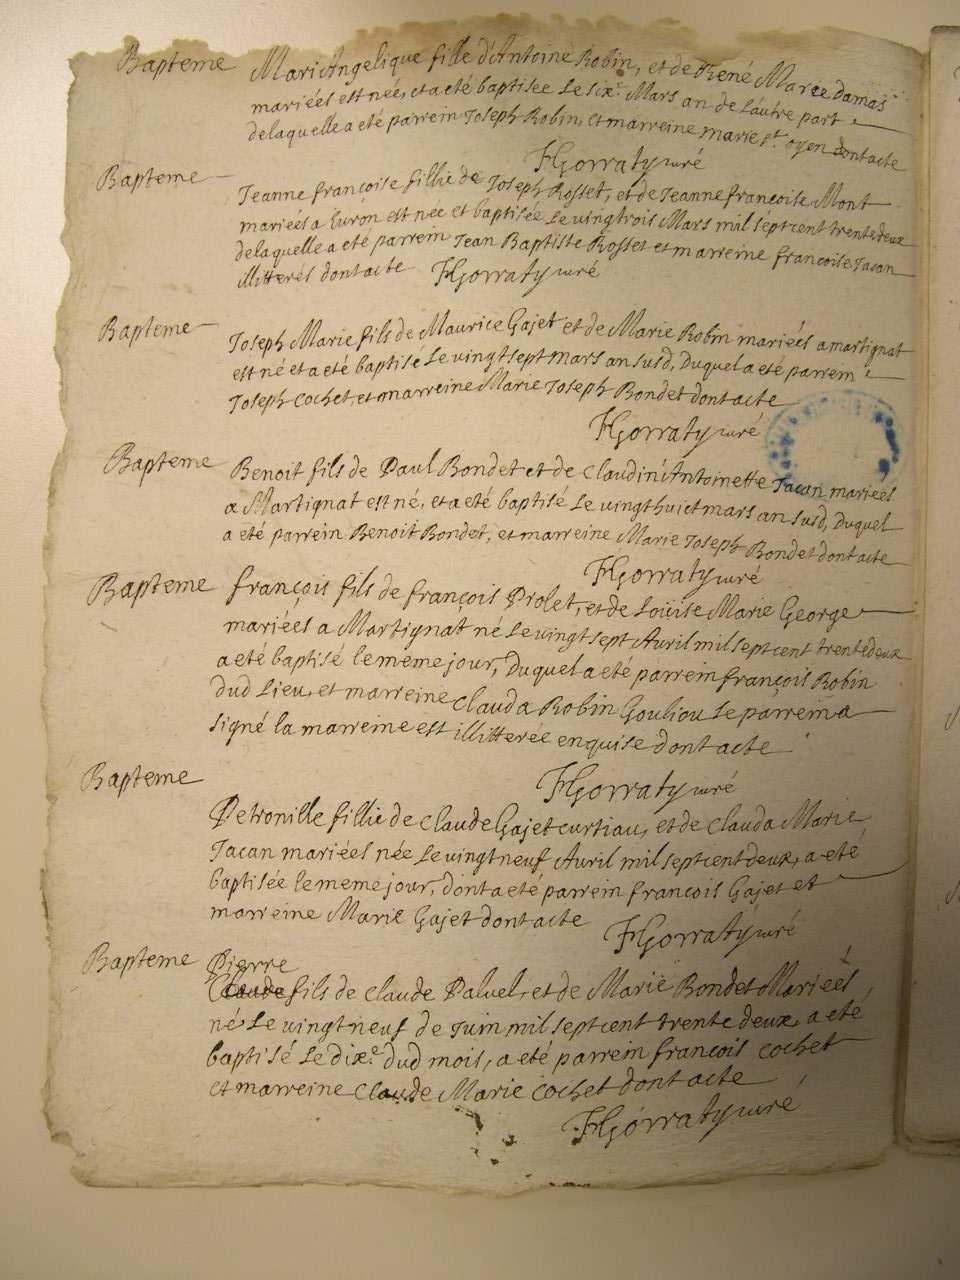 Bapteme Mari Angelique fille d'Antoine Robin, et de René Marie Damas
mariées est née, et a eté baptisée Le six.e Mars an de Lautre part
de laquelle a eté parrein Joseph Robin, et marreine marie St. oyen dont acte
FGorraty curé
Bapteme Jeanne francoise fillie de Joseph Rosset, et de Jeanne francoise Mont
mariées a Euron est née et baptisée Le vingtrois Mars mil septcent trente deux
de laquelle a eté parrein Jean Baptiste Rosset et marreine francoise Tacan
illitterés dont acte FGorraty curé
Bapteme Joseph Marie fils de Maurice Gajet et de Marie Robin mariées a martignat
est né et a eté baptisé Le vingt sept mars an susd, Duquel a eté parrein
Joseph Cochet, et marreine Marie Joseph Bondet dont acte
FGorraty curé
Bapteme Benoit fils de Paul Bondet et de Claudin'Antoinette Tacan mariées
a Martignat est né, et a eté baptisé Le vingthuict mars an susd, Duquel
a eté parrein Benoit Bondet, et marreine Marie Joseph Bondet dont acte
FGorraty curé
Bapteme françois fils de françois Prolet, et de Loüise Marie George
mariées a Martignat né Le vingt sept Avril mil septcent trente deux
a eté baptisé le meme jour, Duquel a eté parrein françois Robin
dud Lieu, et marreine Clauda Robin Gouliou Le parrein a
signé la marreine est illitteree enquise dont acte
FGorraty curé
Bapteme Petronille fillie de Claude Gajet curtiau, et de Clauda Marie
Tacan mariées née Le vingt neuf Avril mil septcent deux, a eté
baptisée le meme jour, dont a eté parrein francois Gajet et
marreine Marie Gajet dont acte FGorraty curé
Bapteme Pierre
Claude fils de Claude Paluel, et de Marie Bondet Mariées
né Le vingt neuf de Juin mil septcent trente deux, a eté
baptisé Le dix.e dud mois, a eté parrein francois Cochet
et marreine Claude Marie Cochet dont acte
FGorraty curé